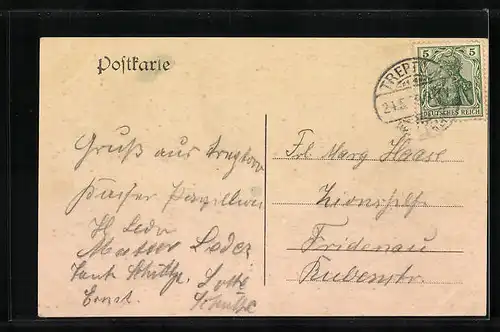 Postkarte
5 5
DEUTSCHES REICH
TREPT
Gruß aus Treptow
Kaiser Pavillon
Mutter
Tante Schultze, Lotte
Ernst. Schultze
Frl. Marg Haase
Friedenau
Rubenstr.